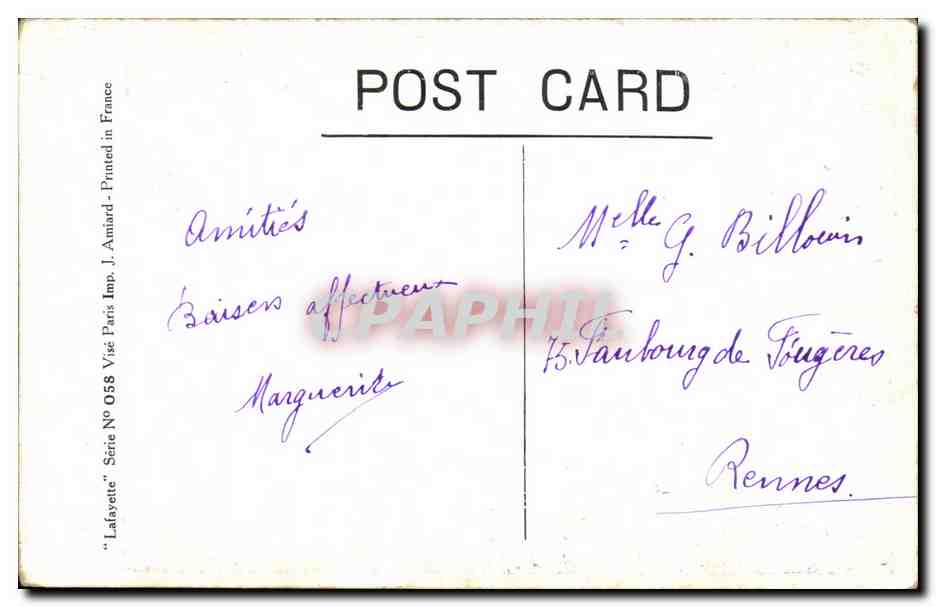 POST CARD
"Lafayette" Série Nº 058 Visé Paris Imp. J. Amiard - Printed in France
Amitiés
Baisers affectueux
Marguerite
Melle G. Billouin
75. Faubourg de Fougères
Rennes.
CPAPHIL